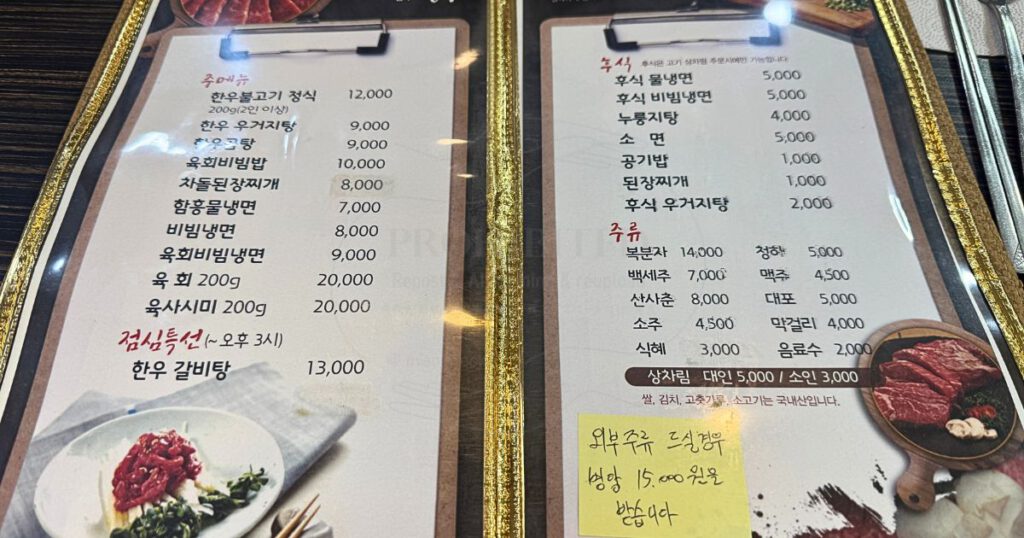 주메뉴
한우불고기 정식 12,000
200g(2인 이상)
한우 우거지탕 9,000
한우곰탕 9,000
육회비빔밥 10,000
차돌된장찌개 8,000
함흥물냉면 7,000
비빔냉면 8,000
육회비빔냉면 9,000
육 회 200g 20,000
육사시미 200g 20,000
점심특선 (~오후 3시)
한우 갈비탕 13,000
후식 후식은 고기 상차림 주문시에만 가능합니다
후식 물냉면 5,000
후식 비빔냉면 5,000
누룽지탕 4,000
소 면 5,000
공기밥 1,000
된장찌개 1,000
후식 우거지탕 2,000
주류
복분자 14,000 청하 5,000
백세주 7,000 맥주 4,500
산사춘 8,000 대포 5,000
소주 4,500 막걸리 4,000
식혜 3,000 음료수 2,000
상차림 대인 5,000 / 소인 3,000
쌀, 김치, 고춧가루, 소고기는 국내산입니다.
외부주류 드실경우
병당 15.000원을
받습니다